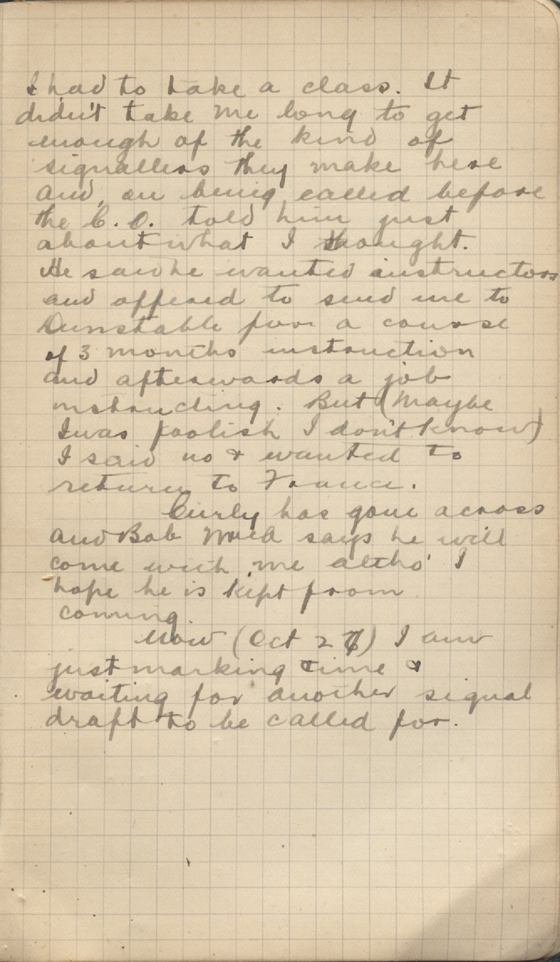 I had to take a class. It
didn't take me long to get
enough of the kind of
signallers they make here
and, on being called before
the C.O. told him just
about what I thought.
He said he wanted instructors
and offered to send me to
Dunstable for a course
of 3 months instruction
and afterwards a job
instructing. But (Maybe
I was foolish I don't know)
I said no & wanted to
return to France.
Curly has gone across
and Bob says he will
come with me altho' I
hope he is kept from
coming.
Now (Oct 27) I am
just marking time &
waiting for another signal
draft to be called for.